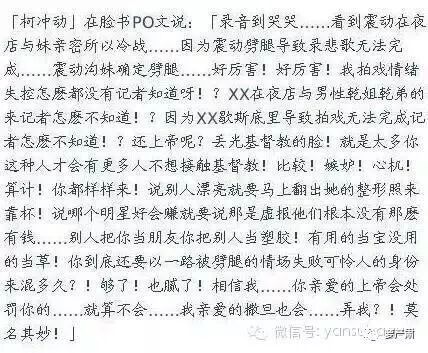 「柯冲动」在脸书PO文说：「录音到哭哭……看到震动在夜
店与妹亲密所以冷战……因为震动劈腿导致录悲歌无法完
成……震动沟妹确定劈腿……好厉害！好厉害！我拍戏情绪
失控怎麽都没有记者知道呀！？XX在夜店与男性乾姐乾弟的
来记者怎麽不知道！？因为XX歇斯底里导致拍戏无法完成记
者怎麽不知道！？还上帝呢？丢光基督教的脸！就是太多你
这种人才会有更多人不想接触基督教！比较！嫉妒！心机！
算计！你都样样来！说别人漂亮就要马上翻出她的整形照来
靠杯！说哪个明星好会赚就要说那是虚报他们根本没有那麽
有钱……别人把你当朋友你把别人当塑胶！有用的当宝没用
的当草！你到底还要以一路被劈腿的情场失败可怜人的身份
来混多久？！够了！也腻了！相信我……你亲爱的上帝会处
罚你的……就算不会……我亲爱的撒旦也会……弄我？！莫
名其妙！」
微信号: yansu